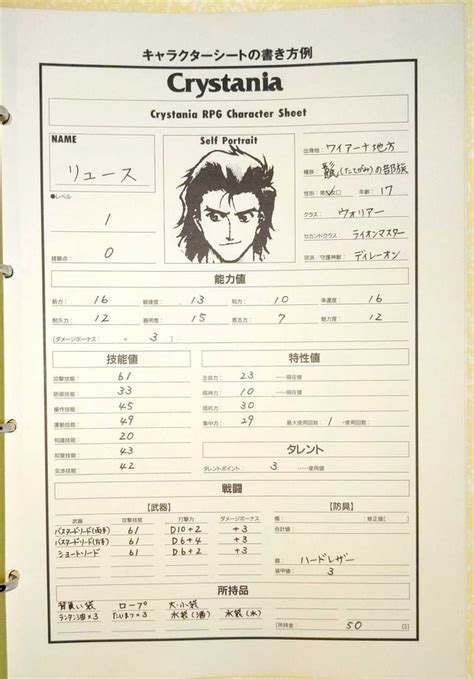 キャラクターシートの書き方例
Crystania
Crystania RPG Character Sheet
NAME
リュース
●レベル
1
経験点：
0
Self Portrait
出身地：ワイアーナ地方
種族：鬣(たてがみ)の部族
年齢：17
クラス：ウォリアー
セカンドクラス：ライオンマスター
宗派／守護神獣：ディレーオン
能力値
筋力：16 敏速度：13 知力：10 幸運度：16
耐久力：12 器用度：15 意志力：7 魅力度：12
(ダメージボーナス：+3)
技能値
攻撃技能：61
防御技能：33
操作技能：45
運動技能：49
知識技能：20
知覚技能：43
交渉技能：42
特性値
生命力：23 ―現在値
精神力：10 ―現在値
抵抗力：30
集中力：29 最大使用回数：1 -使用回数：
タレント
タレントポイント：3 ―使用値
戦闘
【武器】
武器 攻撃技能 打撃力 ダメージボーナス
バスタードソード(両手) 61 D10+2 +3
バスタードソード(片手) 61 D6+4 +3
ショートソード 61 D6+2 +3
【防具】
修正値
合計値：
鎧：ハードレザー
装甲値：3
所持品
背負い袋 ロープ 大・小袋
ランタン油×3 たいまつ×3 水袋(酒) 水袋(水)
所持金：50